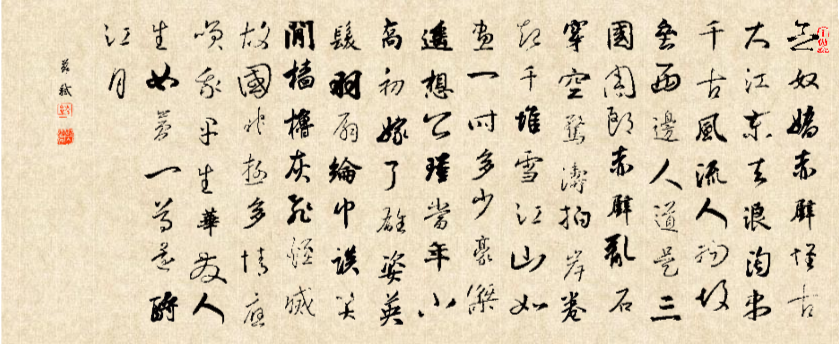 念奴嬌赤壁懷古
大江東去浪淘盡
千古風流人物故
壘西邊人道是三
國周郎赤壁亂石
穿空驚濤拍岸卷
起千堆雪江山如
畫一時多少豪傑
遙想公瑾當年小
喬初嫁了雄姿英
髮羽扇綸巾談笑
間檣櫓灰飛煙滅
故國神遊多情應
笑我早生華髮人
生如夢一尊還酹
江月
蘇軾